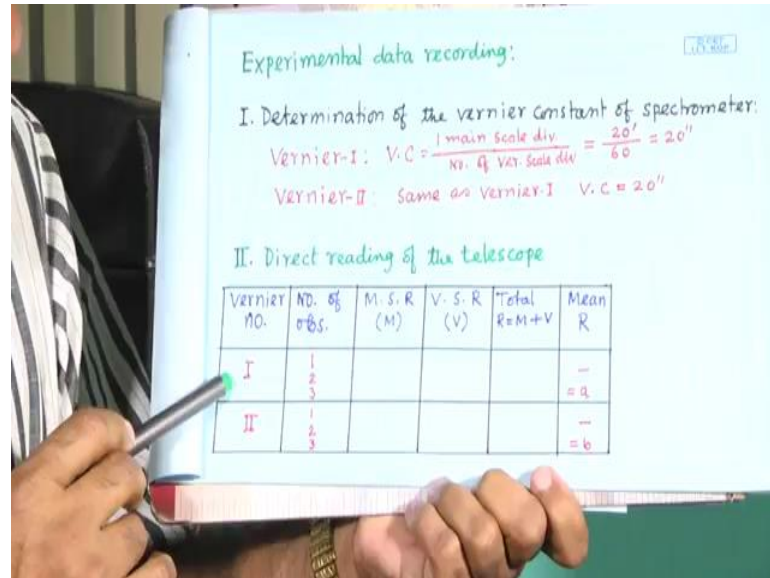 Experimental data recording:
I. Determination of the vernier constant of spectrometer:
Vernier-I: V.C = 1 main scale div. / No. of Ver. Scale div = 20' / 60 = 20"
Vernier-II: Same as Vernier-I V.C = 20"
II. Direct reading of the telescope
Vernier no. No. of obs. M.S.R (M) V.S.R (V) Total R=M+V Mean R
I 1 2 3 — = a
II 1 2 3 — = b